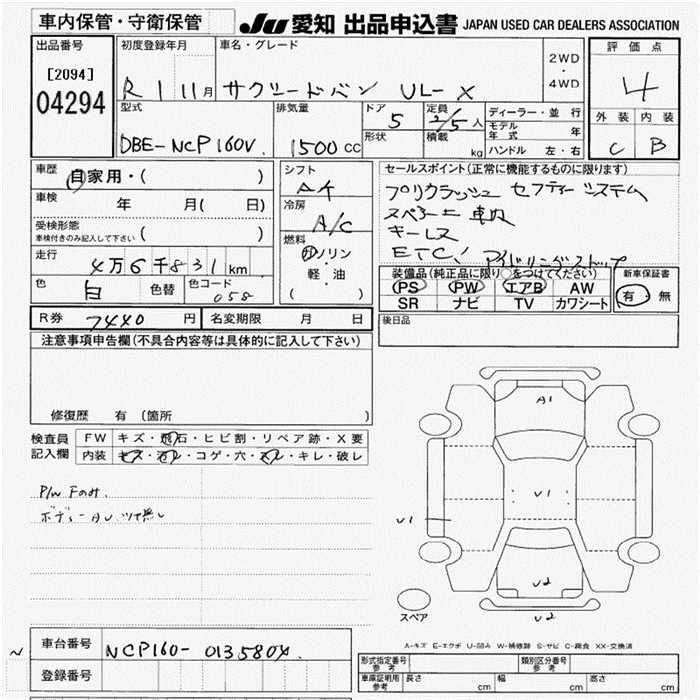 車内保管・守衛保管
JU 愛知 出品申込書 JAPAN USED CAR DEALERS ASSOCIATION
出品番号
[2094]
04294
初度登録年月
R 1 11月
車名・グレード
サクシードバン UL-X
2WD
・
4WD
評価点
4
外装 内装
C B
型式
DBE-NCP160V
排気量
1500 CC
ドア
5
形状
定員
2/5人
積載
kg
ディーラー・並行
モデル年式 年
ハンドル 左・右
車歴
自家用・( )
車検
年 月( 日)
受検形態
車検付きのみ記入して下さい ( )
走行
4万6千831km
色
白
色替
色コード
058
シフト
AT
冷房
A/C
燃料
ガソリン
軽・油
( )
セールスポイント(正常に機能するものに限ります)
プリクラッシュ セフティーシステム
スペアーキー 車内
キーレス
ETC! アイドリングストップ
装備品(純正品に限り○をつけてください)
PS PW エアB AW
SR ナビ TV カワシート
新車保証書
有・無
後日品
R券 7440 円
名変期限 月 日
注意事項申告欄(不具合内容等は具体的に記入して下さい)
修復歴 有 (箇所 )
検査員
記入欄
FW キズ・飛石・ヒビ割・リペア跡・X要
内装 キズ・汚レ・コゲ・穴・スレ・キレ・破レ
P/W Fのみ.
ボディーAU ツヤ無し
A1
U1
U1
U2
U2
スペア
A-キズ E-エクボ U-凹み W-補修跡 S-サビ C-腐食 XX-交換済
~
車台番号
NCP160-0135804
登録番号
形式指定番号
参考
類別区分番号
参考
車庫証明用
参考
長さ cm 幅 cm 高さ cm